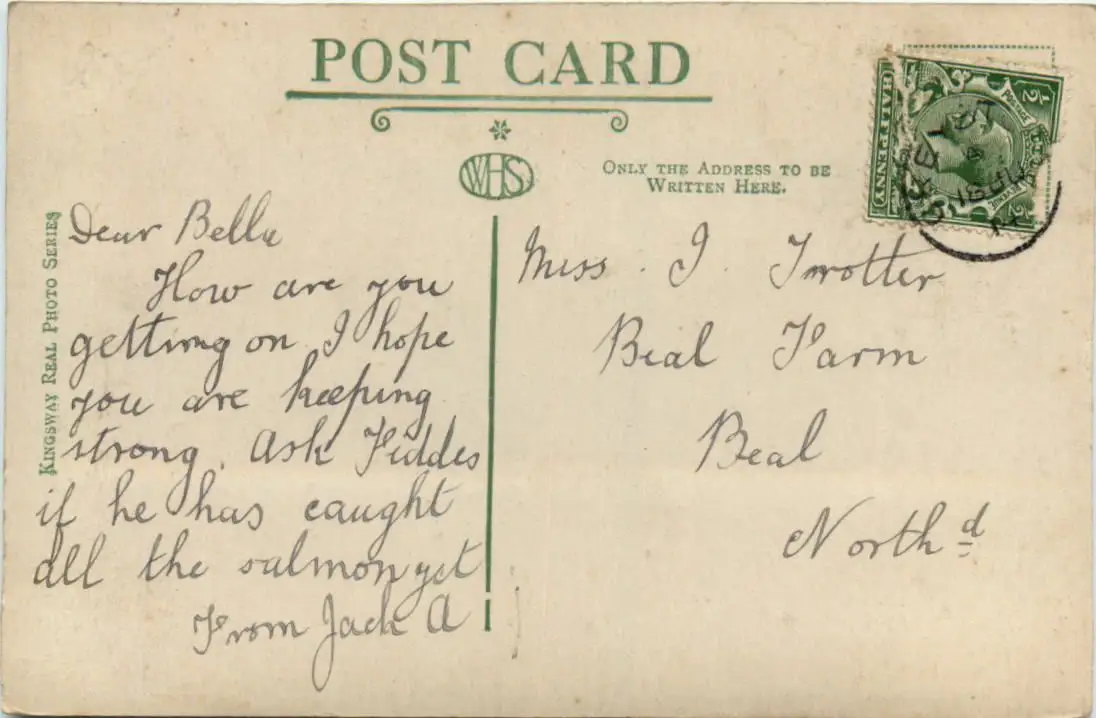 POST CARD
WHS
ONLY THE ADDRESS TO BE
WRITTEN HERE.
KINGSWAY REAL PHOTO SERIES
HALFPENNY
POSTAGE
REVENUE
1/2
1/2
Dear Bella
How are you
getting on I hope
you are keeping
strong. Ask Fiddes
if he has caught
all the salmon yet
From Jack A
Miss. I. Trotter
Beal Farm
Beal
Northd